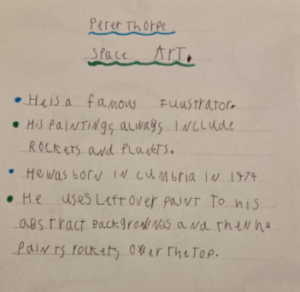 Peter Thorpe
Space ART.
He is a famous Illustrator.
His Paintings always Include
Rockets and Planets.
He was born in cumbria in 1974
He uses Left over paint to his
abstract backgrounds and then he
Paints rockets over the top.